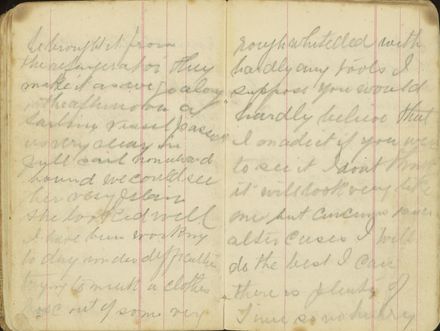 he brought it from
the refrigerator they
make it as we go along
in the afternoon a
sailing vessel passed
us very away in
full sail homeward
bound we could see
her very plain
she looked well
I have been working
to day under difficulties
trying to make a clothes
out of some very
rough whitelled with
hardly any tools I
suppose you would
hardly believe that
I made it if you were
to see it I dont think
it will look very like
one but circumstances
alter cases I will
do the best I can
there is plenty of
time so no hurry